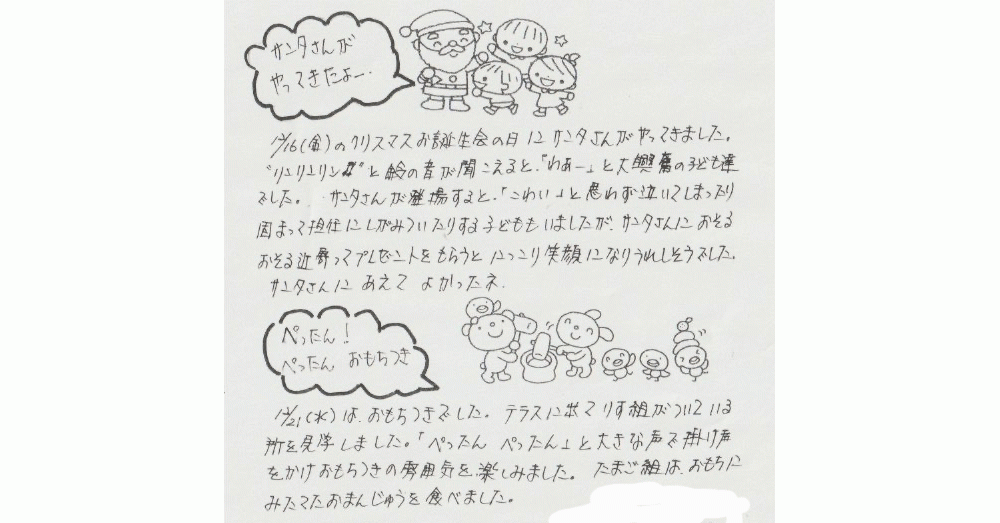 サンタさんが
やってきたよー.
12/16(金)のクリスマスお誕生会の日にサンタさんがやってきました。
"リンリンリン♫"と鈴の音が聞こえると、「わあー」と大興奮の子ども達
でした。 サンタさんが登場すると、「こわい」と思わず泣いてしまったり
固まって担任にしがみついたりする子どももいましたが、サンタさんにおそる
おそる近寄ってプレゼントをもらうと にっこり笑顔になりうれしそうでした。
サンタさんに あえて よかったネ.
ぺったん!
ぺったん おもちつき
12/21(水)は、おもちつきでした。 テラスに出て りす組がついている
所を見学しました。「ぺったん ぺったん」と大きな声で掛け声
をかけおもちつきの雰囲気を楽しみました。 たまご組は、おもちに
みたてたおまんじゅうを食べました。